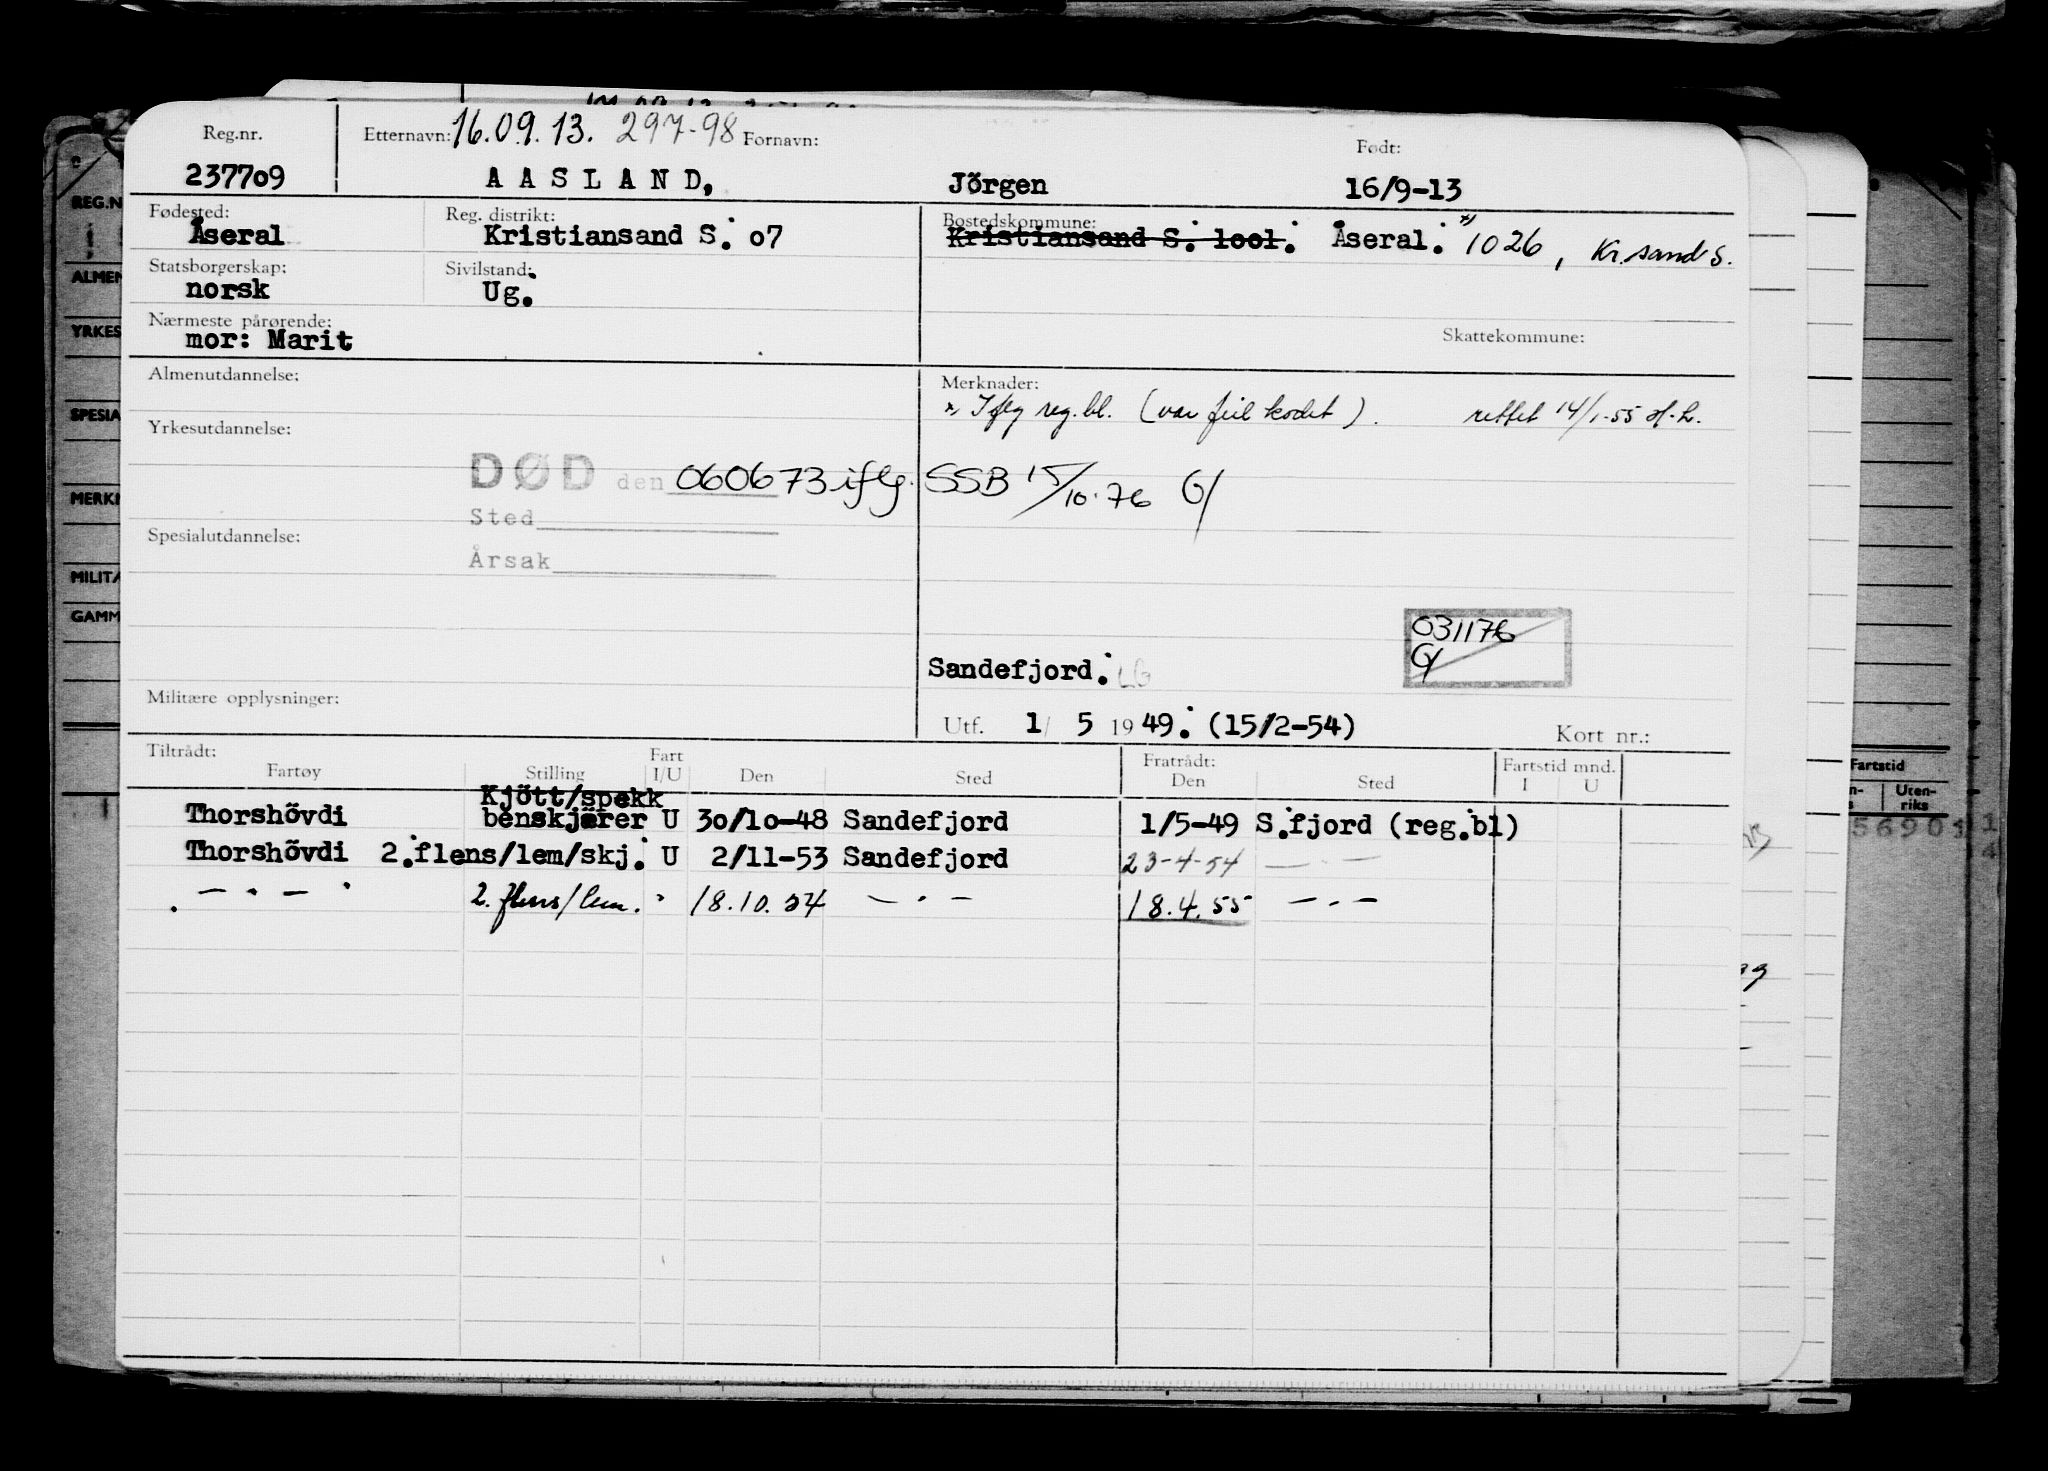 Reg.nr. Etternavn: 16.09.13. 297-98 Fornavn: Født:
237709 AASLAND, Jörgen 16/9-13
Fødested: Reg. distrikt: Bostedskommune:
Åseral Kristiansand S. o7 Kristiansand S. lool. Åseral. x) 1026, Kr.sand S.
Statsborgerskap: Sivilstand:
norsk Ug.
Nærmeste pårørende: Skattekommune:
mor: Marit
Almenutdannelse: Merknader:
x) Iflg reg.bl. (var feil kodet). rettet 14/1-55
Yrkesutdannelse:
DØD den 060673 iflg. SSB 15/10.76 G/
Sted
Spesialutdannelse:
Årsak
031176
G/
Sandefjord. LG
Militære opplysninger:
Utf. 1/ 5 1949. (15/2-54) Kort nr.:
Tiltrådt: Fart Fratrådt: Fartstid mnd.
Fartøy Stilling I/U Den Sted Den Sted I U
Kjött/spekk
Thorshövdi benskjærer U 30/10-48 Sandefjord 1/5-49 S.fjord (reg.bl)
Thorshövdi 2.flens/lem/skj. U 2/11-53 Sandefjord 23-4-54 — . —
— " — " 2. flens/lem. " 18.10.54 — . — 18.4.55 — . —
REG.N
ALMEN
YRKES
SPESIA
MERKN
MILITÆ
GAMM
Fartstid
Uten-
riks